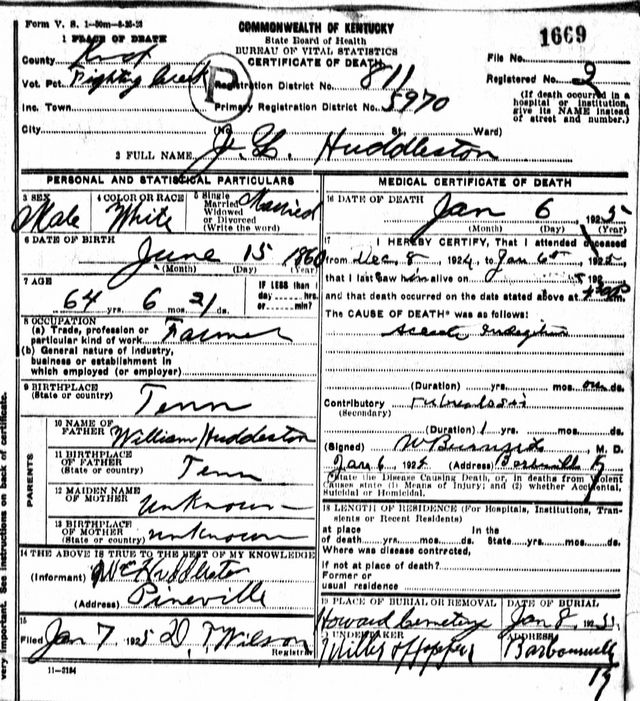 Form V. S. 1-50m-8-26-23
COMMONWEALTH OF KENTUCKY
State Board of Health
BUREAU OF VITAL STATISTICS
CERTIFICATE OF DEATH
1669
1 PLACE OF DEATH
County Knox
File No.
Vot. Pct. Fighting Creek
P
Registration District No. 811
Registered No. 2
Inc. Town
Primary Registration District No. 5970
(If death occurred in a hospital or institution, give its NAME instead of street and number.)
City (No. St. Ward)
2 FULL NAME J. L. Huddleston
PERSONAL AND STATISTICAL PARTICULARS
3 SEX Male
4 COLOR OR RACE White
5 Single Married Widowed or Divorced (Write the word) Married
6 DATE OF BIRTH June 15 1860
(Month) (Day) (Year)
7 AGE 64 yrs. 6 mos. 21 ds.
IF LESS than 1 day hrs. or min?
8 OCCUPATION
(a) Trade, profession or particular kind of work Farmer
(b) General nature of industry, business or establishment in which employed (or employer)
9 BIRTHPLACE (State or country) Tenn
PARENTS
10 NAME OF FATHER William Huddleston
11 BIRTHPLACE OF FATHER (State or country) Tenn
12 MAIDEN NAME OF MOTHER Unknown
13 BIRTHPLACE OF MOTHER (State or country) unknown
14 THE ABOVE IS TRUE TO THE BEST OF MY KNOWLEDGE
(Informant) Huddleston
(Address) Pineville
15
Filed Jan 7 1925 D T Wilson
Registrar
11-3184
MEDICAL CERTIFICATE OF DEATH
16 DATE OF DEATH Jan 6, 1925
(Month) (Day) (Year)
17 I HEREBY CERTIFY, That I attended deceased
from Dec. 8, 1924, to Jan 6th, 1925,
that I last saw him alive on 5, 192
and that death occurred on the date stated above at
The CAUSE OF DEATH* was as follows:
Acute Indigestion
(Duration) yrs. mos. one ds.
Contributory (Secondary) Tuberculosis
(Duration) 1 yrs. mos. ds.
(Signed) M. D.
Jan 6, 1925 (Address) Barbourville Ky
*State the Disease Causing Death, or, in deaths from Violent Causes state (1) Means of Injury; and (2) whether Accidental, Suicidal or Homicidal.
18 LENGTH OF RESIDENCE (For Hospitals, Institutions, Transients or Recent Residents)
at place of death yrs. mos. ds. In the State yrs. mos. ds.
Where was disease contracted, if not at place of death?
Former or usual residence
19 PLACE OF BURIAL OR REMOVAL Howard Cemetery
DATE OF BURIAL Jan 8, 1925
20 UNDERTAKER
ADDRESS Barbourville Ky
very important. See instructions on back of certificate.